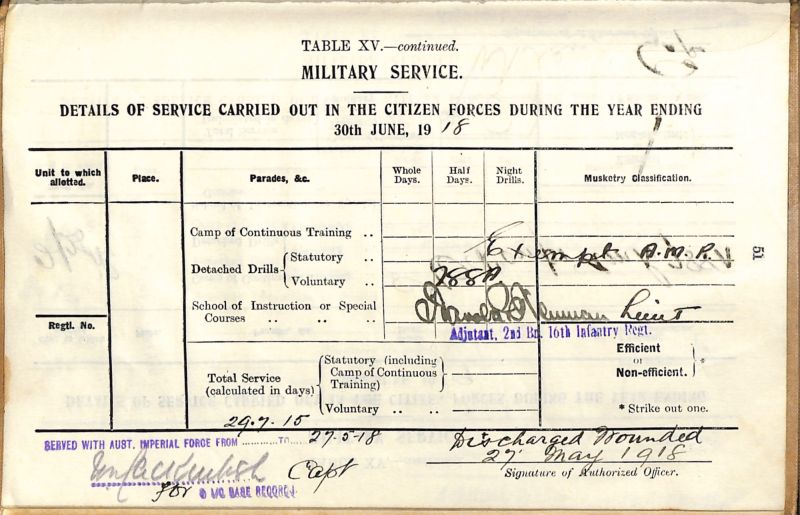 TABLE XV.—continued.
MILITARY SERVICE.
DETAILS OF SERVICE CARRIED OUT IN THE CITIZEN FORCES DURING THE YEAR ENDING
30th JUNE, 1918
Unit to which allotted.
Place.
Parades, &c.
Whole Days.
Half Days.
Night Drills.
Musketry Classification.
Camp of Continuous Training ..
Exempt A.M.R.
Detached Drills { Statutory ..
Voluntary ..
788A
School of Instruction or Special
Courses .. .. ..
Lieut
Regtl. No.
Adjutant, 2nd Bn. 16th Infantry Regt.
Efficient
or
Non-efficient. } *
Total Service (calculated in days) { Statutory (including Camp of Continuous Training)
Voluntary .. ..
* Strike out one.
29.7.15
SERVED WITH AUST. IMPERIAL FORCE FROM ............ TO ...... 27-5-18
Discharged Wounded
27 May 1918
Capt
Signature of Authorized Officer.
for O I/C BASE RECORDS
51